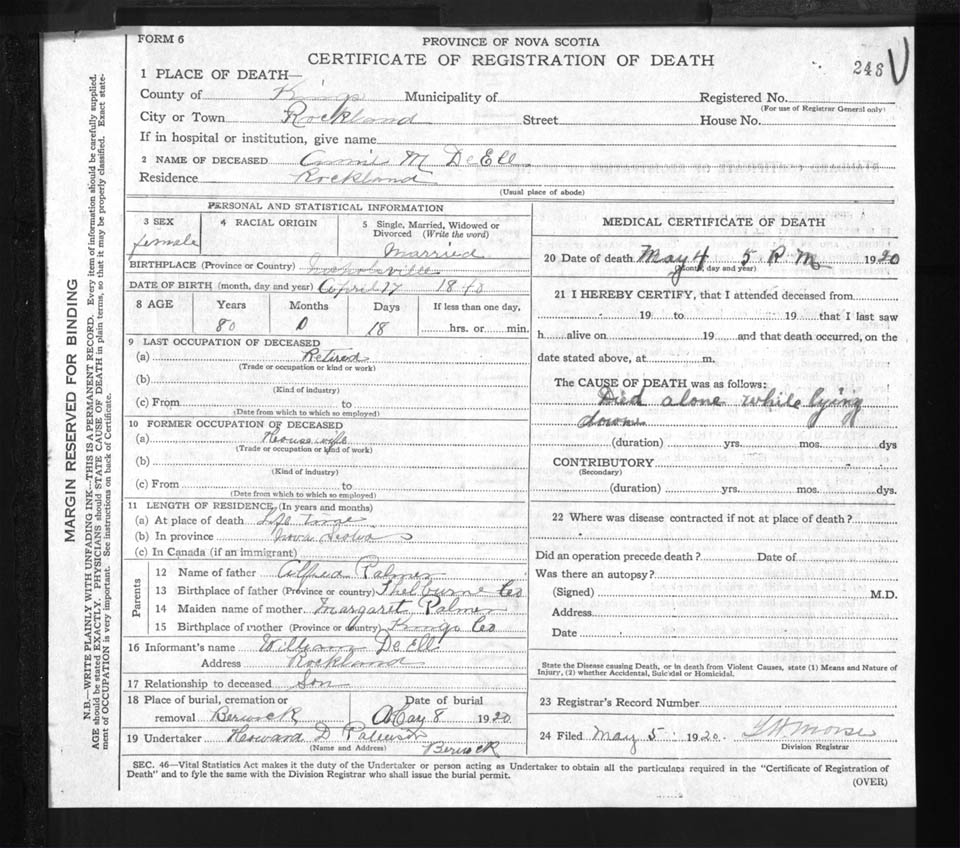 FORM 6
PROVINCE OF NOVA SCOTIA
CERTIFICATE OF REGISTRATION OF DEATH
246
1 PLACE OF DEATH—
County of Kings Municipality of Registered No.
(For use of Registrar General only)
City or Town Rockland Street House No.
If in hospital or institution, give name
2 NAME OF DECEASED Annie M DeEll
Residence Rockland
(Usual place of abode)
PERSONAL AND STATISTICAL INFORMATION
3 SEX
female
4 RACIAL ORIGIN
5 Single, Married, Widowed or
Divorced (Write the word)
Married
BIRTHPLACE (Province or Country) Nicholsville
DATE OF BIRTH (month, day and year) April 17 1840
8 AGE Years Months Days If less than one day,
80 0 18 hrs. or min.
9 LAST OCCUPATION OF DECEASED
(a) Retired
(Trade or occupation or kind or work)
(b)
(Kind of industry)
(c) From to
(Date from which to which so employed)
10 FORMER OCCUPATION OF DECEASED
(a) House wife
(Trade or occupation or kind of work)
(b)
(Kind of industry)
(c) From to
(Date from which to which so employed)
11 LENGTH OF RESIDENCE (In years and months)
(a) At place of death Life time
(b) In province Nova Scotia
(c) In Canada (if an immigrant)
Parents
12 Name of father Alfred Palmer
13 Birthplace of father (Province or country) Shelburne Co
14 Maiden name of mother Margaret Palmer
15 Birthplace of mother (Province or country) Kings Co
16 Informant's name William DeEll
Address Rockland
17 Relationship to deceased Son
18 Place of burial, cremation or Date of burial
removal Berwick May 8 1920
19 Undertaker Howard D
(Name and Address) Berwick
MEDICAL CERTIFICATE OF DEATH
20 Date of death May 4 5 P M 1920
(Month, day and year)
21 I HEREBY CERTIFY, that I attended deceased from
19 to 19 that I last saw
h alive on 19 and that death occurred, on the
date stated above, at m.
The CAUSE OF DEATH was as follows:
Died alone while lying
down
(duration) yrs. mos. dys
CONTRIBUTORY
(Secondary)
(duration) yrs. mos. dys.
22 Where was disease contracted if not at place of death?
Did an operation precede death? Date of
Was there an autopsy?
(Signed) M.D.
Address
Date
State the Disease causing Death, or in death from Violent Causes, state (1) Means and Nature of
Injury, (2) whether Accidental, Suicidal or Homicidal.
23 Registrar's Record Number
24 Filed May 5 1920 Morse
Division Registrar
SEC. 46—Vital Statistics Act makes it the duty of the Undertaker or person acting as Undertaker to obtain all the particulars required in the "Certificate of Registration of
Death" and to fyle the same with the Division Registrar who shall issue the burial permit.
(OVER)
MARGIN RESERVED FOR BINDING
N.B.—WRITE PLAINLY WITH UNFADING INK—THIS IS A PERMANENT RECORD. Every item of information should be carefully supplied.
AGE should be stated EXACTLY. PHYSICIANS should STATE CAUSE OF DEATH in plain terms, so that it may be properly classified. Exact state-
ment of OCCUPATION is very important. See instructions on back of Certificate.